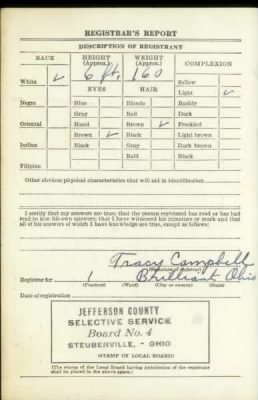 REGISTRAR'S REPORT
DESCRIPTION OF REGISTRANT
RACE HEIGHT (Approx.) WEIGHT (Approx.) COMPLEXION
6 ft. 160
White ✓ Sallow
EYES HAIR Light ✓
Negro Blue Blonde Ruddy
Gray Red Dark
Oriental Hazel Brown ✓ Freckled
Brown ✓ Black Light brown
Indian Black Gray Dark brown
Bald Black
Filipino
Other obvious physical characteristics that will aid in identification
I certify that my answers are true; that the person registered has read or has had
read to him his own answers; that I have witnessed his signature or mark and that
all of his answers of which I have knowledge are true, except as follows:
Tracy Campbell
(Signature of registrar)
Registrar for 1 Brilliant Ohio
(Precinct) (Ward) (City or county) (State)
Date of registration
JEFFERSON COUNTY
SELECTIVE SERVICE
Board No. 4
STEUBENVILLE, - OHIO
(STAMP OF LOCAL BOARD)
(The stamp of the Local Board having jurisdiction of the registrant
shall be placed in the above space.)